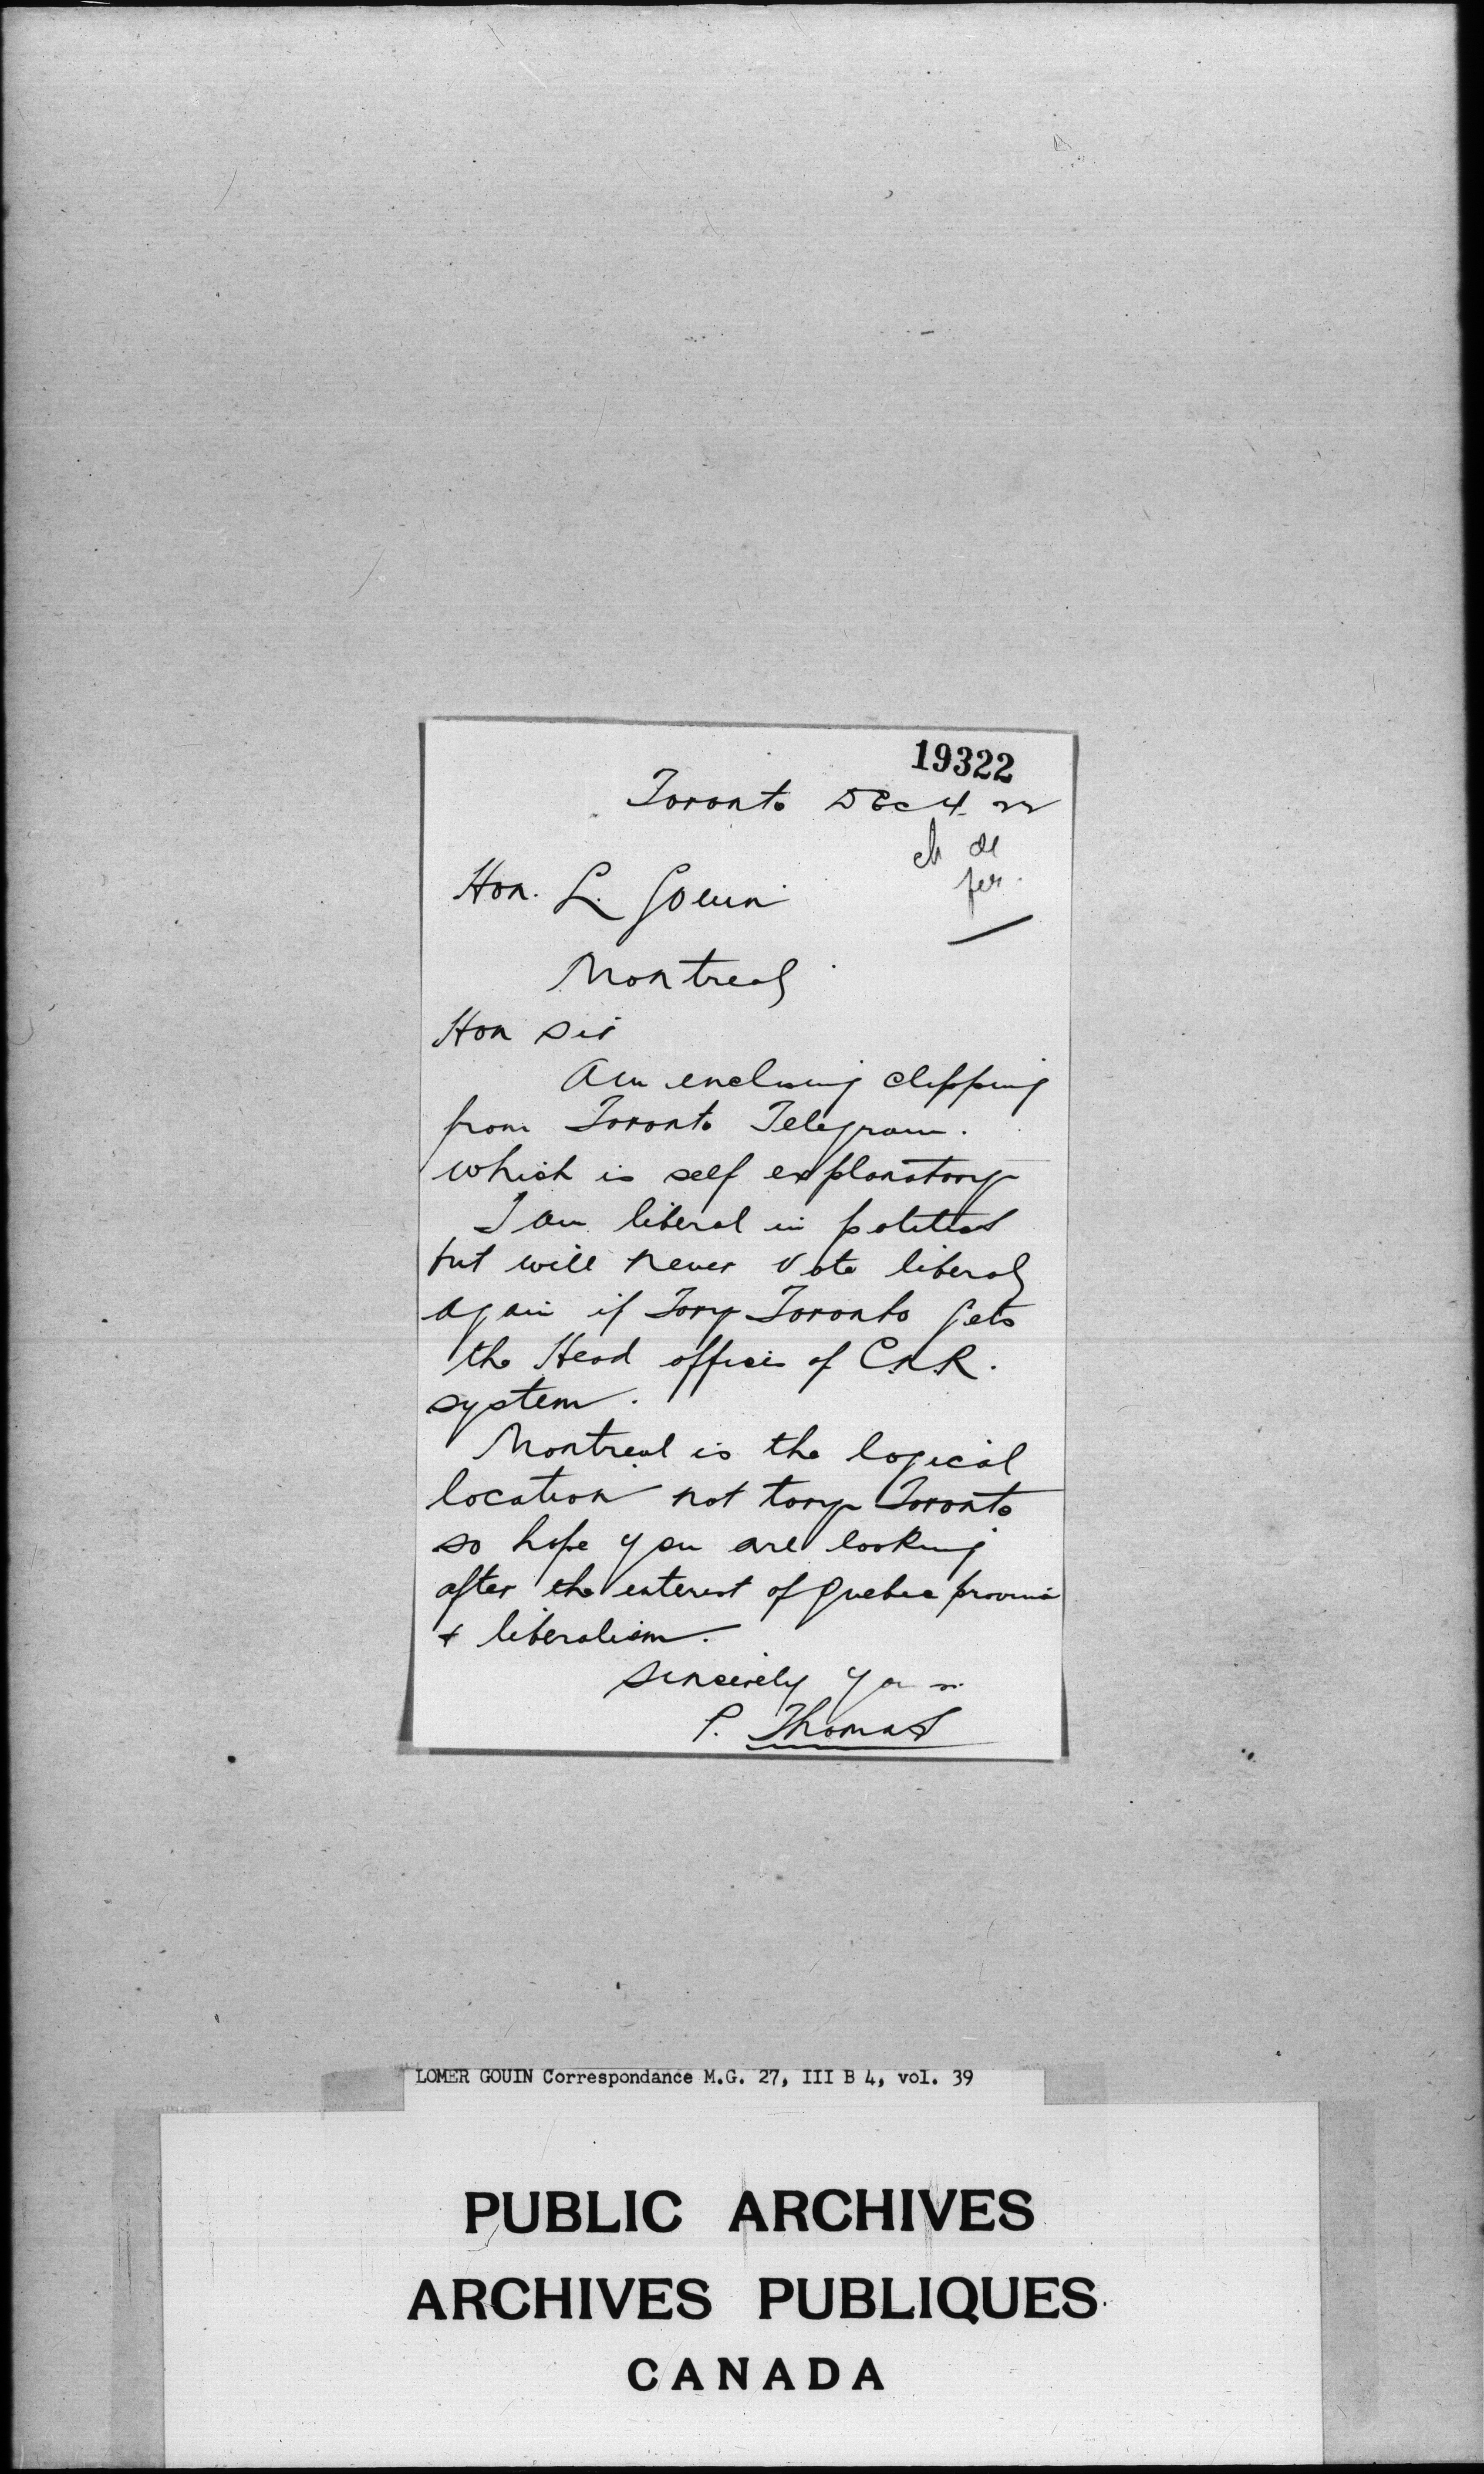 19322
Toronto Dec 4 22
ch de
fer.
Hon. L. Gouin
Montreal
Hon Sir
Am enclosing clipping
from Toronto Telegram.
which is self explanatory
I am liberal in politics
but will never vote liberal
again if Tory Toronto gets
the Head offices of C.N.R.
system.
Montreal is the logical
location not tory Toronto
so hope you are looking
after the interest of Quebec province
+ liberalism.
Sincerely yours
P. Thomas
LOMER GOUIN Correspondance M.G. 27, III B 4, vol. 39
PUBLIC ARCHIVES
ARCHIVES PUBLIQUES
CANADA